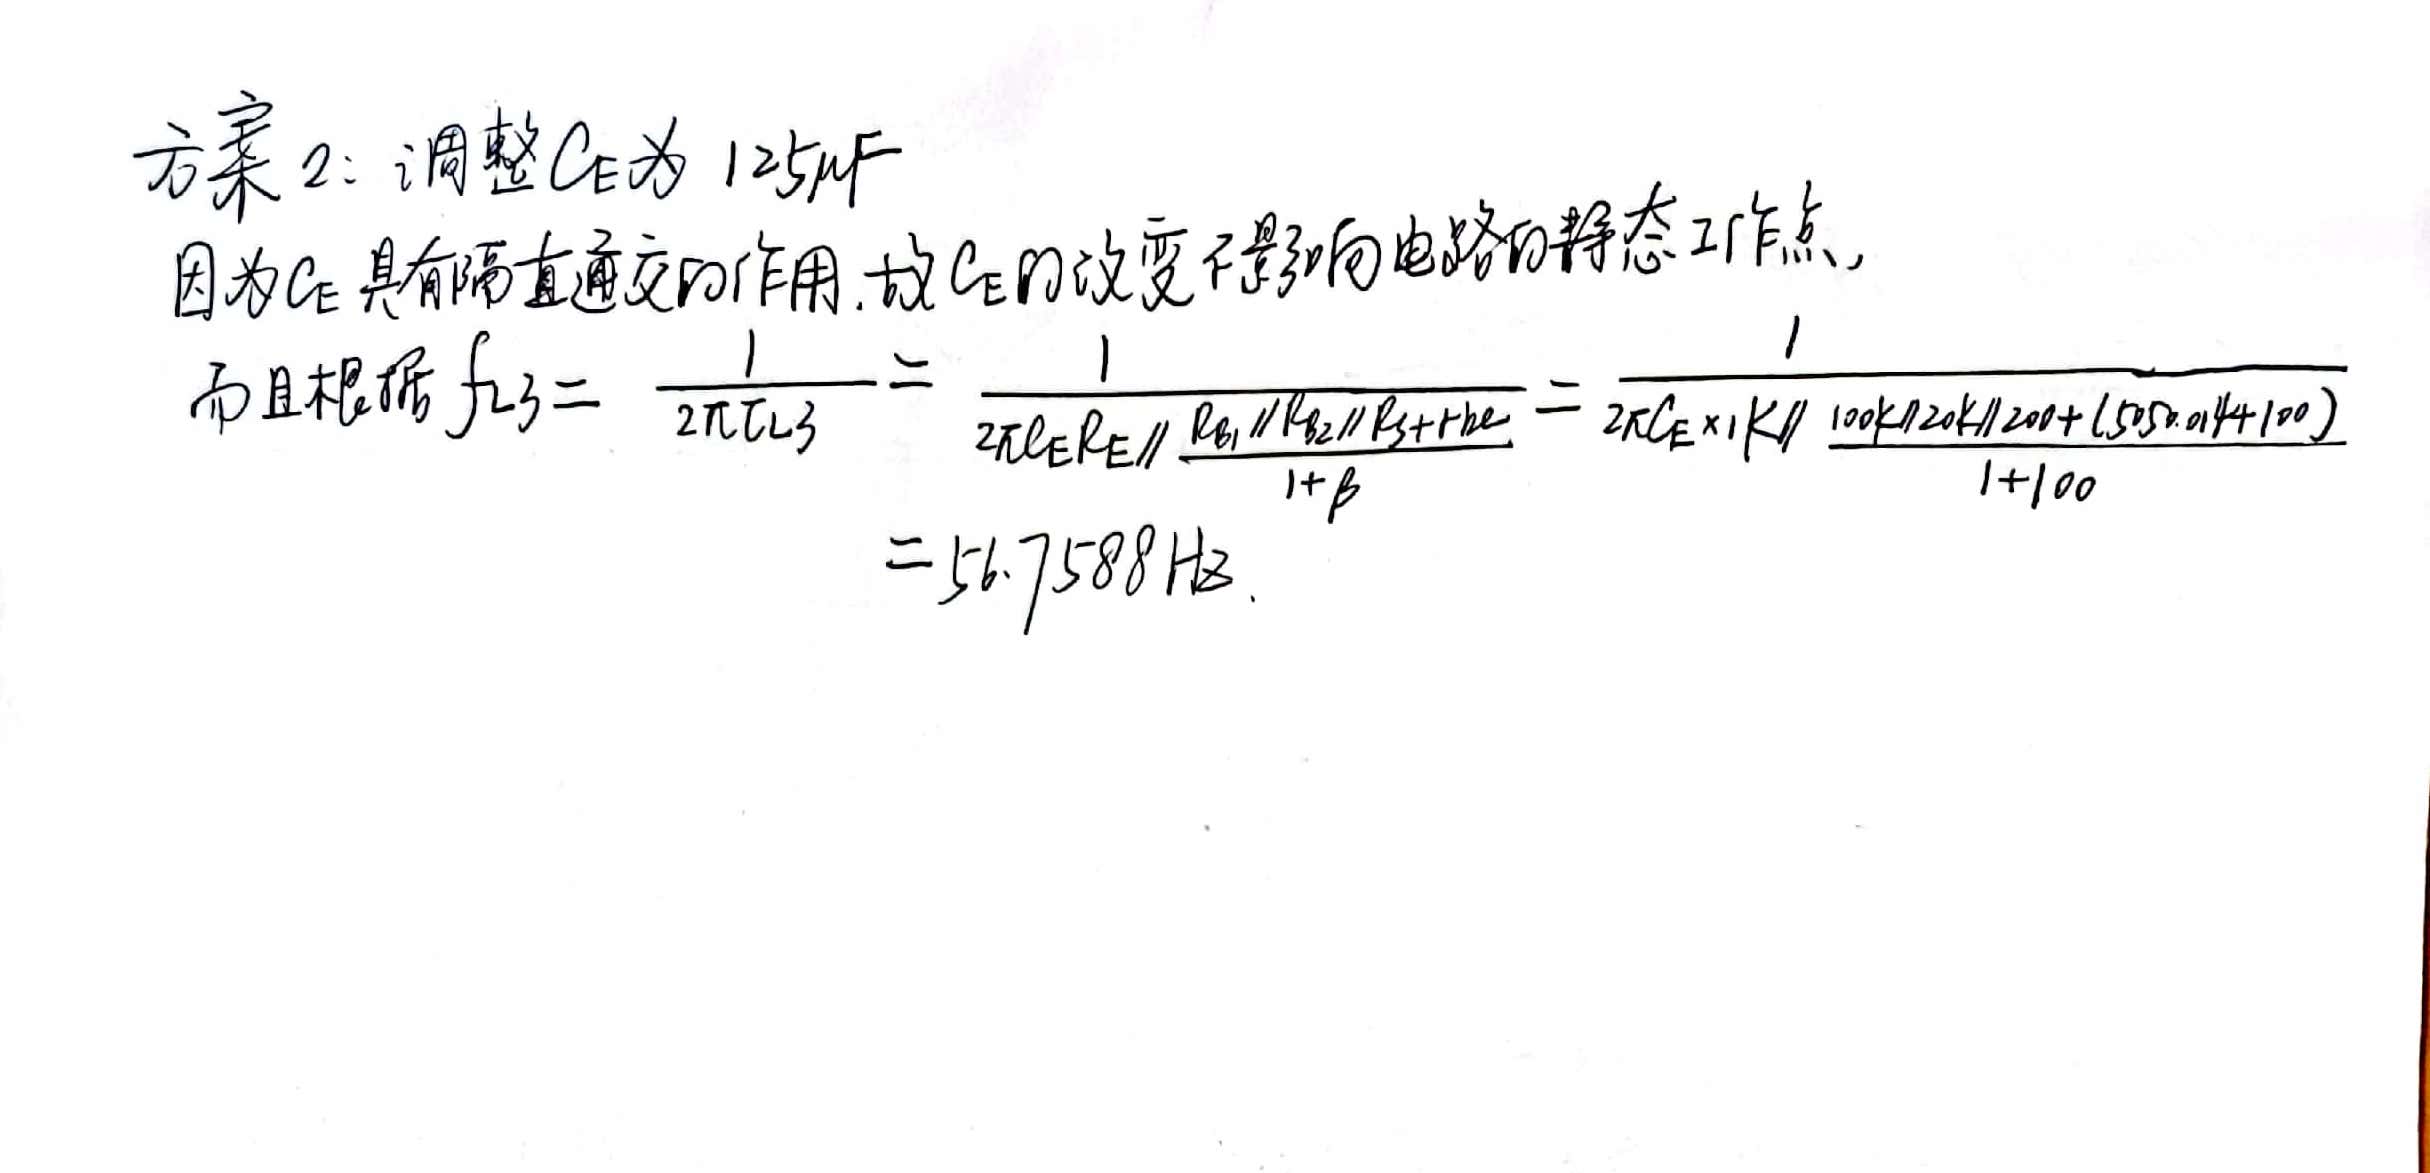 方案2: 调整C_E为 125μF
因为C_E具有隔直通交的作用.故C_E的改变不影响电路的静态工作点,
而且根据 f_L3 = 1/(2πτ_L3) = 1/(2πC_E R_E // (R_B1//R_B2//R_S+r_be)/(1+β)) = 1/(2πC_E×1K// (100K//20K//200+(5050.0144+100))/(1+100))
=56.7588Hz.